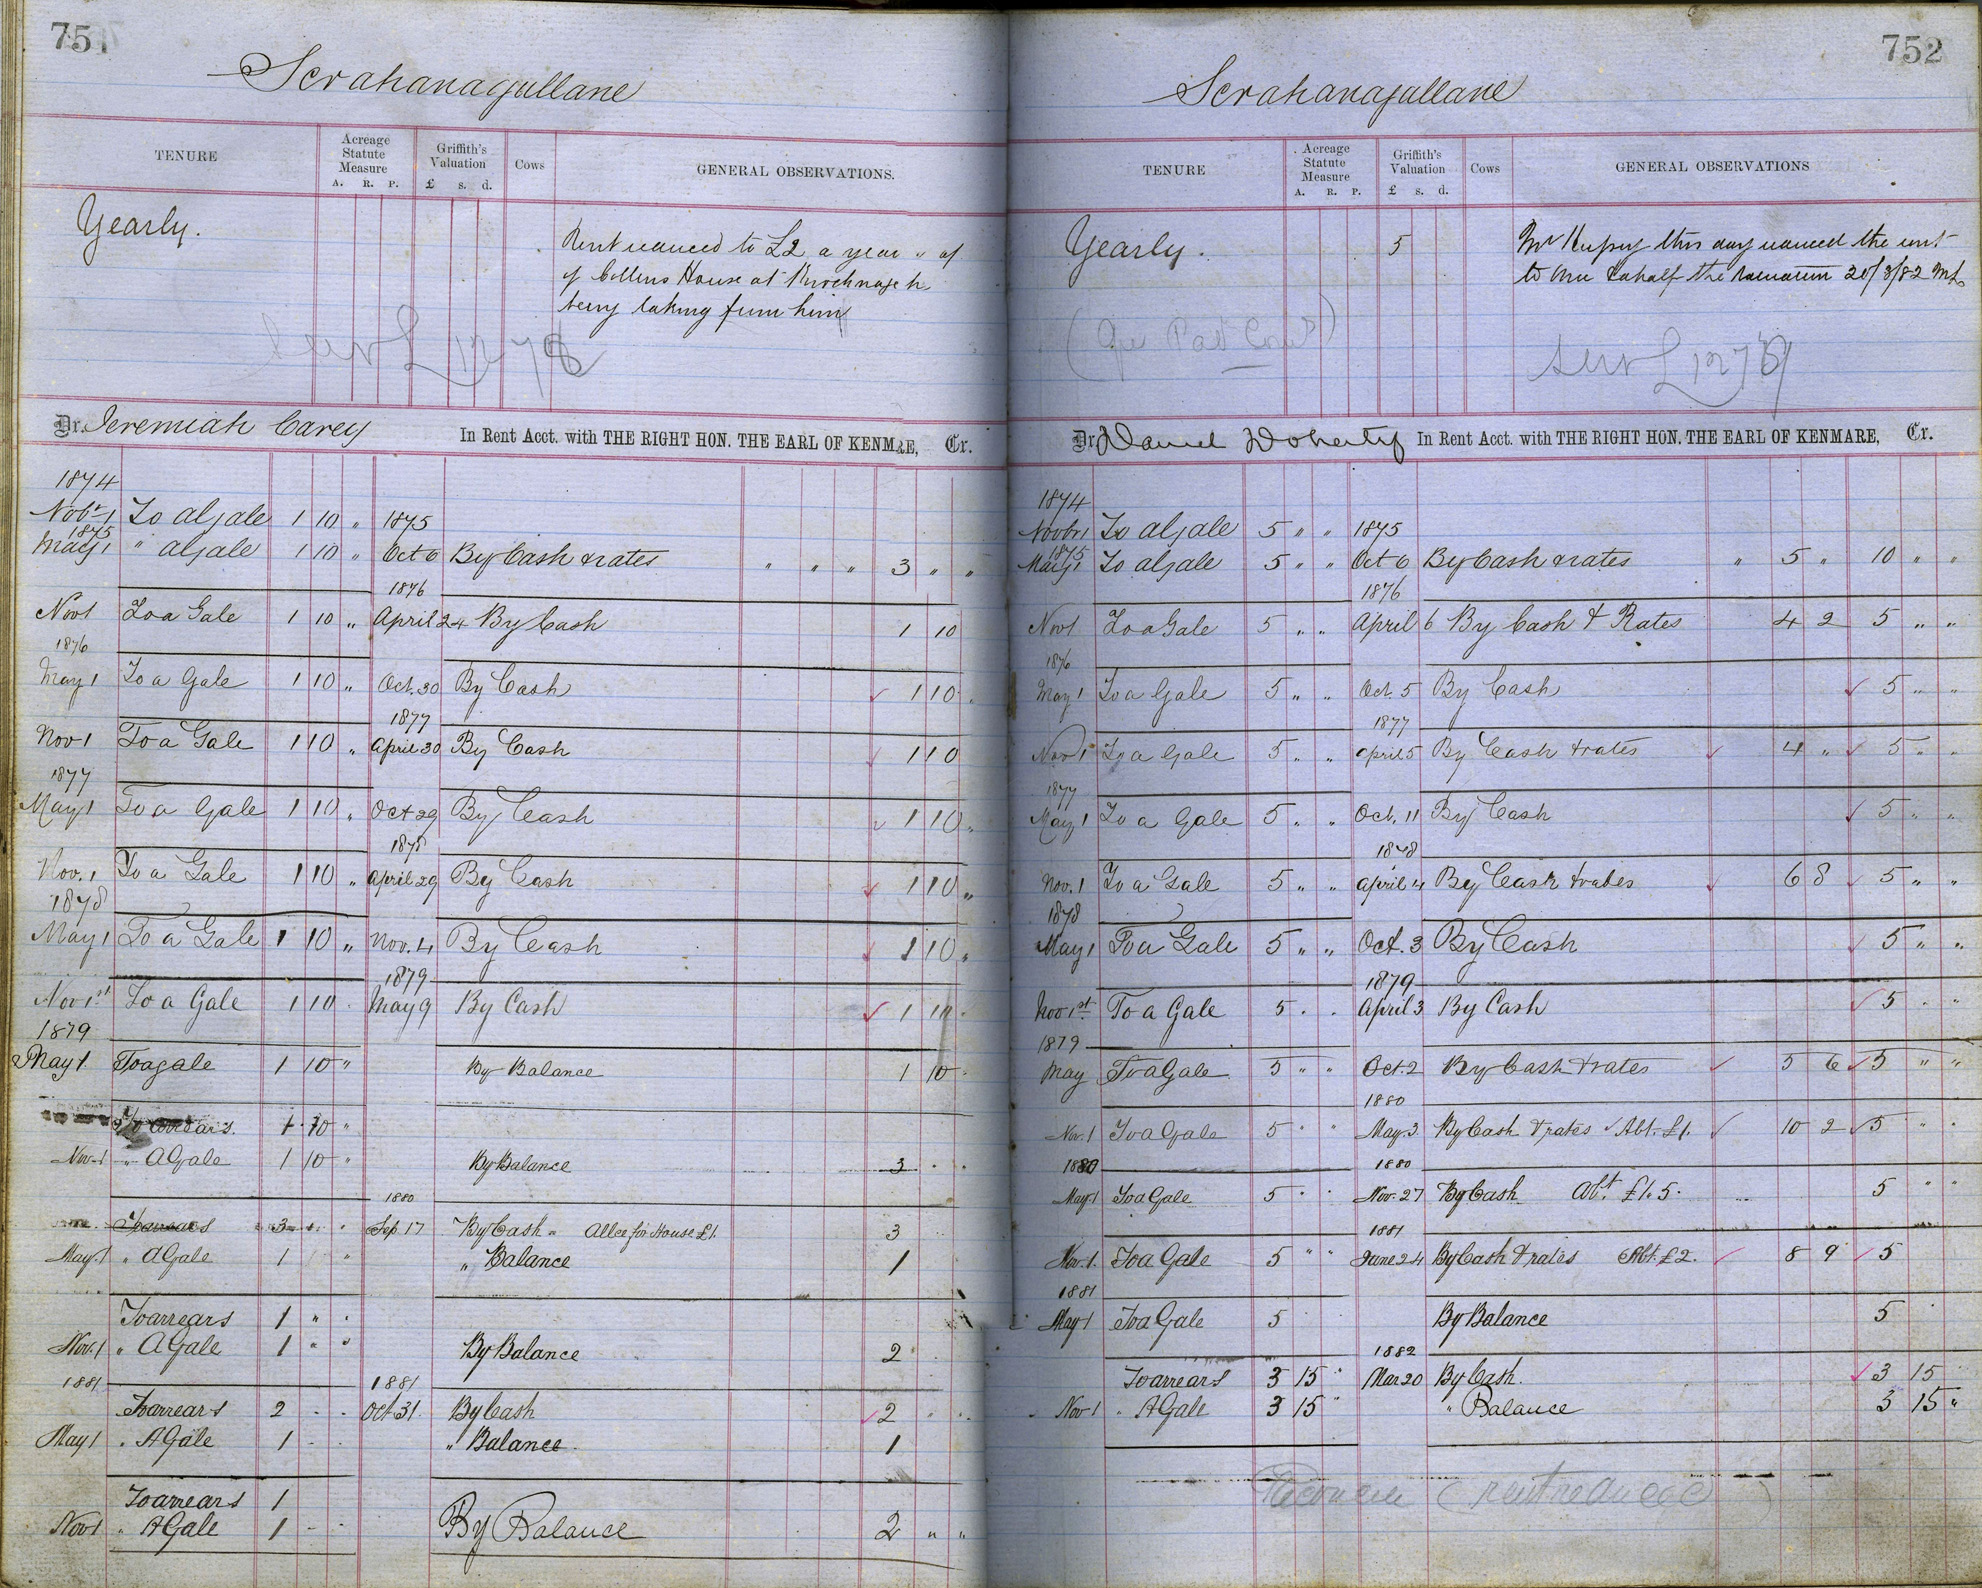 751
Scrahanagullane
TENURE
Acreage Statute Measure
A. R. P.
Griffith's Valuation
£ s. d.
Cows
GENERAL OBSERVATIONS.
Yearly.
Rent reduced to £2 a year " of
of Collins House at
being taking from him
Dr. Jeremiah Carey In Rent Acct. with THE RIGHT HON. THE EARL OF KENMARE, Cr.
1874
Nobr 1 To a Gale 1 10 " 1875
1875
May 1 " a Gale 1 10 " Oct 6 By Cash & rates " " " 3 " "
1876
Nov 1 To a Gale 1 10 " April 24 By Cash 1 10
1876
May 1 To a Gale 1 10 " Oct. 30 By Cash ✓ 1 10 "
1877
Nov 1 To a Gale 1 10 " April 30 By Cash ✓ 1 10
1877
May 1 To a Gale 1 10 " Oct 29 By Cash ✓ 1 10 "
1878
Nov. 1 To a Gale 1 10 " April 29 By Cash ✓ 1 10 "
1878
May 1 To a Gale 1 10 " Nov. 4 By Cash ✓ 1 10 "
1879
Nov 1st To a Gale 1 10 " May 9 By Cash ✓ 1 10 "
1879
May 1. To a gale 1 10 " By Balance 1 10 "
To arrears. 1 10 "
Nov. 1 " A Gale 1 10 " By Balance 3 " "
1880
To arrears 3 " " Sep 17 By Cash " Allce for House £1. 3
May 1 " A Gale 1 " " Balance 1
To arrears 1 " "
Nov. 1 " A Gale 1 " " By Balance 2
1881 1881
To arrears 2 " " Oct 31. By Cash ✓ 2 " "
May 1 " A Gale 1 " " " Balance 1
To arrears 1
Nov 1 " A Gale 1 " " By Balance 2 " "
752
Scrahanagullane
TENURE
Acreage Statute Measure
A. R. P.
Griffith's Valuation
£ s. d.
Cows
GENERAL OBSERVATIONS
Yearly. 5
Mr Hussey this day reduced the rent
to one & a half the valuation 20/3/82
Dr Daniel Doherty In Rent Acct. with THE RIGHT HON. THE EARL OF KENMARE, Cr.
1874
Novbr 1 To a Gale 5 " " 1875
1875
May 1 To a Gale 5 " " Oct 6 By Cash & rates " 5 " 10 " "
1876
Nov 1 To a Gale 5 " " April 6 By Cash & Rates 4 2 5 " "
1876
May 1 To a Gale 5 " " Oct. 5 By Cash ✓ 5 " "
1877
Nov 1 To a Gale 5 " " April 5 By Cash & rates ✓ 4 " ✓ 5 " "
1877
May 1 To a Gale 5 " " Oct. 11 By Cash ✓ 5 " "
1878
Nov. 1 To a Gale 5 " " April 4 By Cash & rates ✓ 6 8 ✓ 5 " "
1878
May 1 To a Gale 5 " " Oct. 3 By Cash ✓ 5 " "
1879
Nov 1st To a Gale 5 " " April 3 By Cash ✓ 5 " "
1879
May To a Gale 5 " " Oct. 2 By Cash & rates ✓ 5 6 ✓ 5 " "
1880
Nov. 1 To a Gale 5 " " May 3 By Cash & rates ✓ Abt. £1. ✓ 10 2 ✓ 5 " "
1880 1880
May 1 To a Gale 5 " " Nov. 27 By Cash Abt. £1. 5. 5 " "
1881
Nov. 1. To a Gale 5 " " June 24 By Cash & rates Abt. £2. ✓ 8 9 ✓ 5
1881
May 1 To a Gale 5 By Balance 5
1882
To arrears 3 15 " Mar 20 By Cash. ✓ 3 15
Nov 1 " A Gale 3 15 " " Balance 3 15 "
(rent reduced)